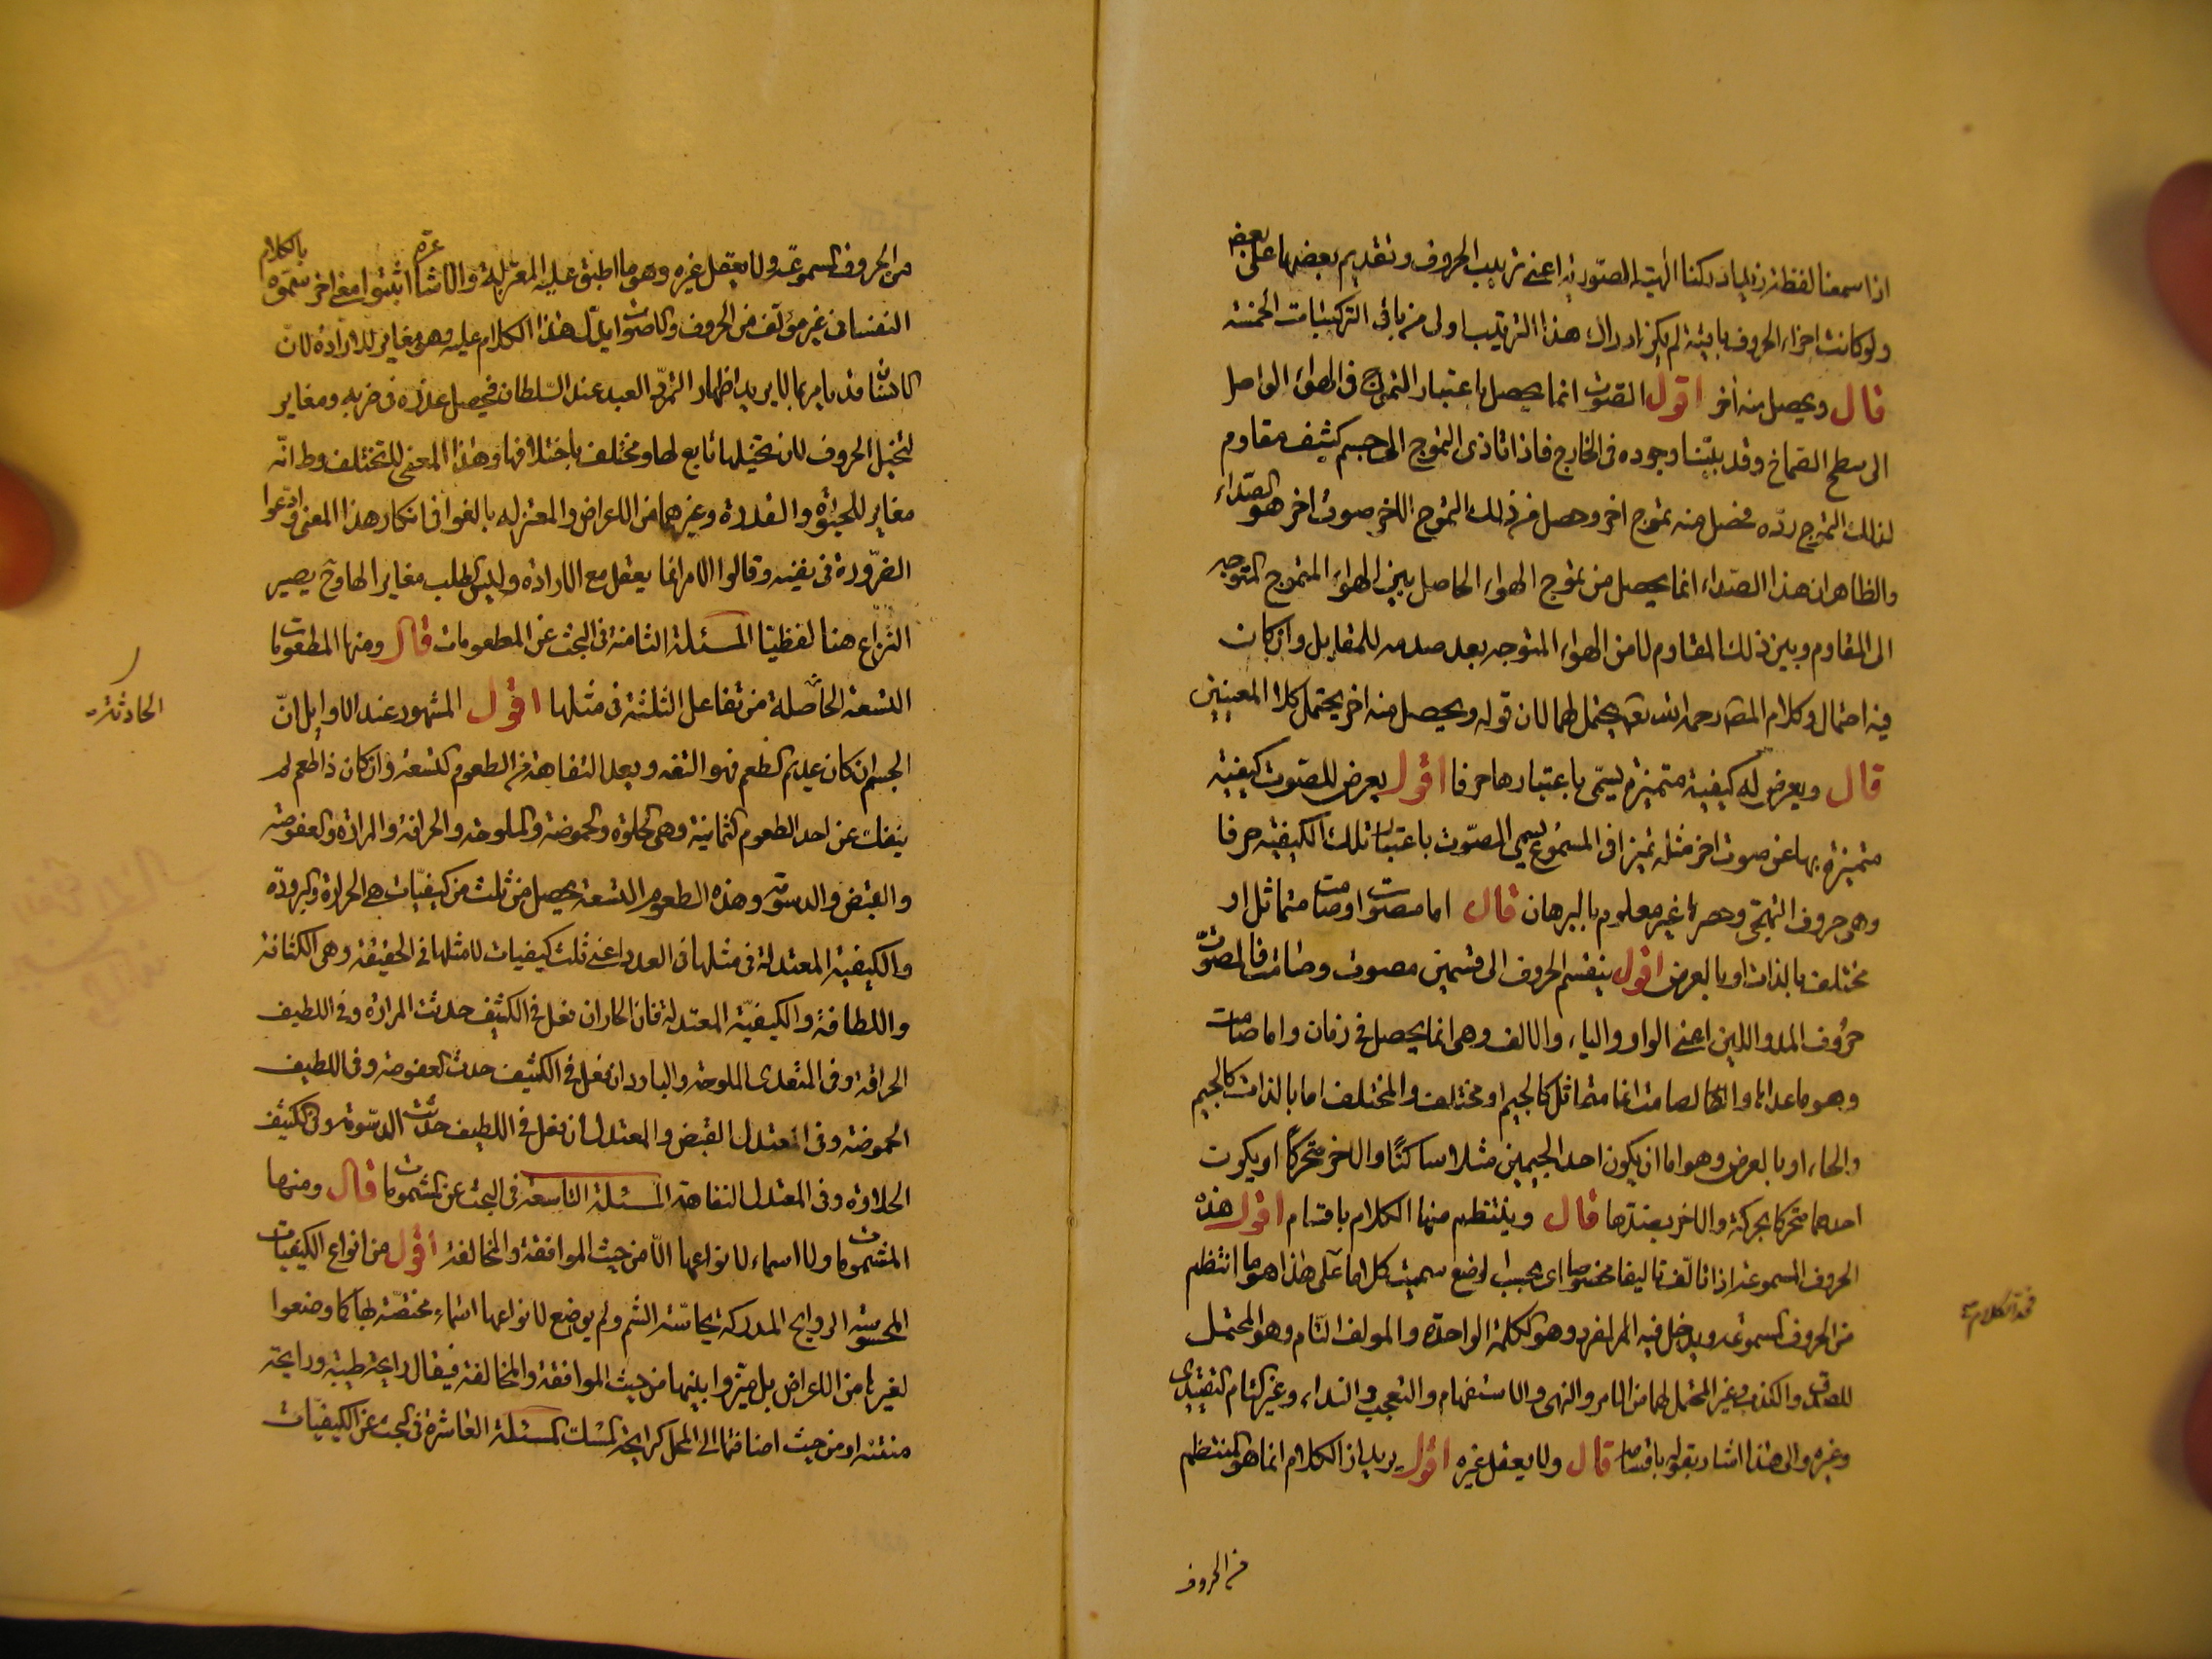 اذا سمعنا لفظة زيد ادركنا الهيئة الصورية اعني ترتيب الحروف وتقديم بعضها على بعض
ولو كانت اجزاء الحروف باقية لم يكن ادراك هذا الترتيب اولى من باقي التركيبات الخمسة
قال ويحصل منه اخر اقول الصوت انما يحصل باعتبار التموج في الهواء الواصل
الى سطح الصماخ وقد بينا وجوده في الخارج فاذا تاذى التموج الى جسم كثيف مقاوم
لذلك التموج رده فحصل منه تموج اخر وحصل من ذلك التموج الاخر صوت اخر هو الصداء
والظاهر ان هذا الصداء انما يحصل من تموج الهواء الحاصل بين الهواء المتموج المتوجه
الى المقاوم وبين ذلك المقاوم لا من الهواء المتوجه بعد صدمه للمقابل وان كان
فيه احتمال وكلام المص رحمه الله تعه يحتملهما لان قوله ويحصل منه اخر يحتمل كلا المعنيين
قال ويعرض له كيفية متميزة يسمى باعتبارها حرفا اقول يعرض للصوت كيفية
متميزة بها عن صوت اخر مثله تميزا في المسموع يسمى الصوت باعتبار تلك الكيفية حرفا
وهي حروف التهجي وحصرها غير معلوم بالبرهان قال اما مصوت او صامت متماثل او
مختلف بالذات او بالعرض اقول ينقسم الحروف الى قسمين مصوت وصامت فالمصوت
حروف المد واللين اعني الواو والياء والالف وهي انما يحصل في زمان واما صامت
وهو ما عداها والصامت اما متماثل كالجيم او مختلف والمختلف اما بالذات كالجيم
والحاء او بالعرض وهو اما ان يكون احد الجيمين مثلا ساكنا والاخر متحركا او يكون
احدهما متحركا بحركة والاخر بضدها قال وينتظم منها الكلام باقسام اقول هذه
الحروف المسموعة اذا تالف تاليفا مخصوصا اي بحسب الوضع سميت كلاما على هذا هو ما انتظم
من الحروف المسموعة ويدخل فيه المفرد وهو الكلمة الواحدة والمولف التام وهو المحتمل
للصدق والكذب وغير المحتمل لهما من الامر والنهي والاستفهام والتعجب والنداء وغير التام التقييدي
وغيره والى هذا اشار بقوله باقسام قال ولا يعقل غيره اقول يريد ان الكلام انما هو المنتظم
من الحروف
من الحروف المسموعة ولا يعقل غيره وهو ما اطبق عليه المعتزلة والاشاعرة اثبتوا معنى اخر سموه بالكلام
النفساني غير مؤلف من الحروف والاصوات يدل هذا الكلام عليه وهو مغاير للارادة لان
الانسان قد يامر بما لا يريد اظهار التمرد العبد عند السلطان فيحصل عذره في ضربه ومغاير
لتخيل الحروف لان تخيلها تابع لها ومختلف باختلافها وهذا المعنى لا يختلف وظ انه
مغاير للحيوة والقدرة وغيرهما من الاعراض والمعتزله بالغوا في انكار هذا المعنى وادعوا
الضرورة في نفيه وقالوا الامر انما يعقل مع الارادة وليس الطلب مغايرا لها وح يصير
النزاع هنا لفظيا المسئلة الثامنة في البحث عن المطعومات قال ومنها المطعومات
التسعة الحاصلة من تفاعل الثلثة في مثلها اقول المشهور عند الاوايل ان
الحادثة
الجسم ان كان عديم الطعم فهو التفه ويعد التفاهة من الطعوم التسعة وان كان ذا طعم لم
ينفك عن احد الطعوم الثمانية وهي الحلاوة والحموضة والملوحة والحرافة والمرارة والعفوصة
والقبض والدسومة وهذه الطعوم التسعة يحصل من ثلث من كيفيات هي الحرارة والبرودة
والكيفية المعتدلة في مثلها في العدد اعني ثلث كيفيات لا مثلها في الحقيقة وهي الكثافة
واللطافة والكيفية المعتدلة فان الحار ان فعل في الكثيف حدثت المرارة وفي اللطيف
الحرافة وفي المعتدل الملوحة والبارد ان فعل في الكثيف حدث العفوصة وفي اللطيف
الحموضة وفي المعتدل القبض والمعتدل ان فعل في اللطيف حدثت الدسومة وفي الكثيف
الحلاوة وفي المعتدل التفاهة المسئلة التاسعة في البحث عن المشمومات قال ومنها
المشمومات ولا اسماء لانواعها الا من حيث الموافقة والمخالفة اقول من انواع الكيفيات
المحسوسة الروايح المدركة بحاسة الشم ولم يوضع لانواعها اسماء مختصة بها كما وضعوا
لغيرها من الاعراض بل ميزوا بينها من حيث الموافقة والمخالفة فيقال رايحة طيبة ورايحة
منتنة او من حيث اضافتها الى المحل كرايحة المسك المسئلة العاشرة في البحث عن الكيفيات